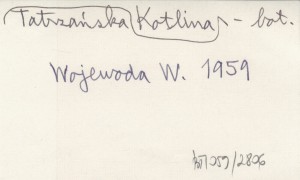 Tatrzańska Kotlina - bot.
Wojewoda W. 1959
059/2806